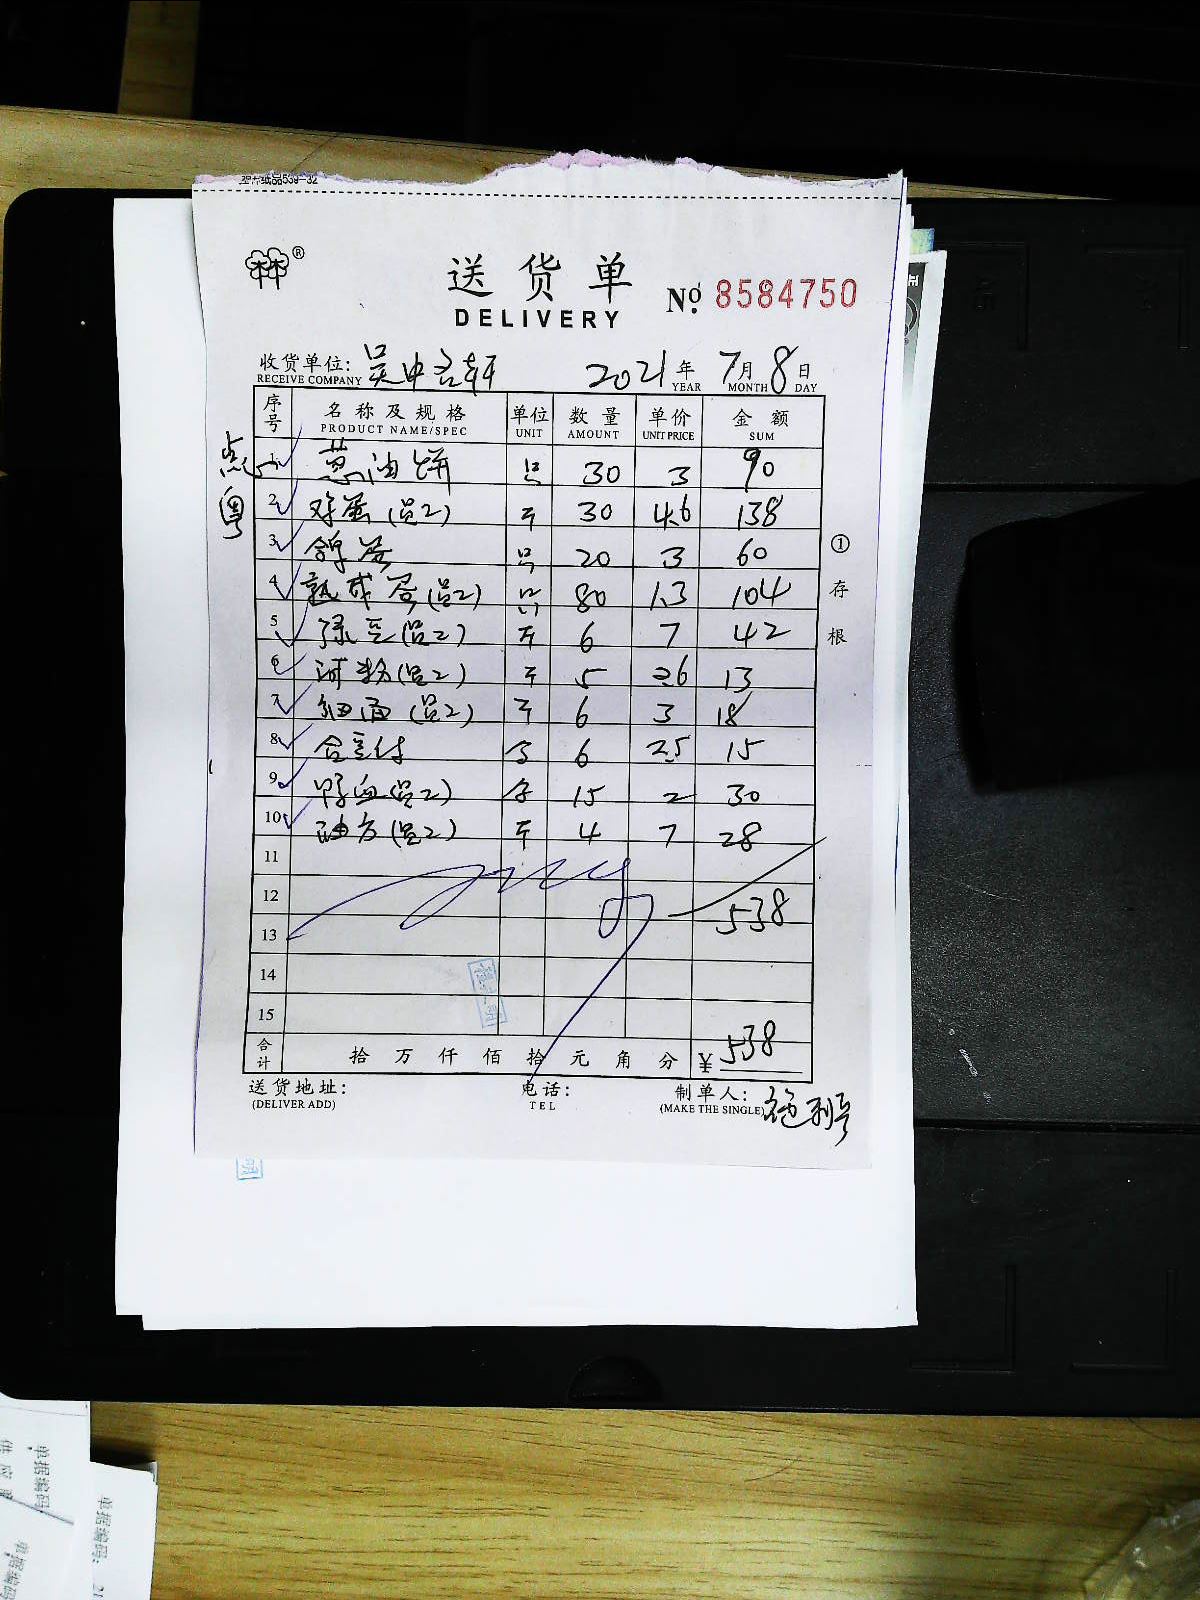 送货单
DELIVERY
No. 8584750
收货单位: 吴中名轩 2021年7月8日
RECEIVE COMPANY YEAR MONTH DAY
序号 名称及规格 单位 数量 单价 金额
PRODUCT NAME/SPEC UNIT AMOUNT UNIT PRICE SUM
点心
粤
1 葱油饼 只 30 3 90
2 鸡蛋(员2) 斤 30 4.6 138
3 鸽蛋 只 20 3 60
4 熟咸蛋(员2) 只 80 1.3 104
5 绿豆(员2) 斤 6 7 42
6 河粉(员2) 斤 5 2.6 13
7 细面(员2) 斤 6 3 18
8 合豆付 合 6 2.5 15
9 鸭血(员2) 合 15 2 30
10 油方(员2) 斤 4 7 28
11
12 538
13
14
15
合计 拾万仟佰拾元角分 ¥ 538
送货地址: 电话: 制单人:
(DELIVER ADD) TEL (MAKE THE SINGLE)
①存根
单据编码
单据编码: 21
单据编码